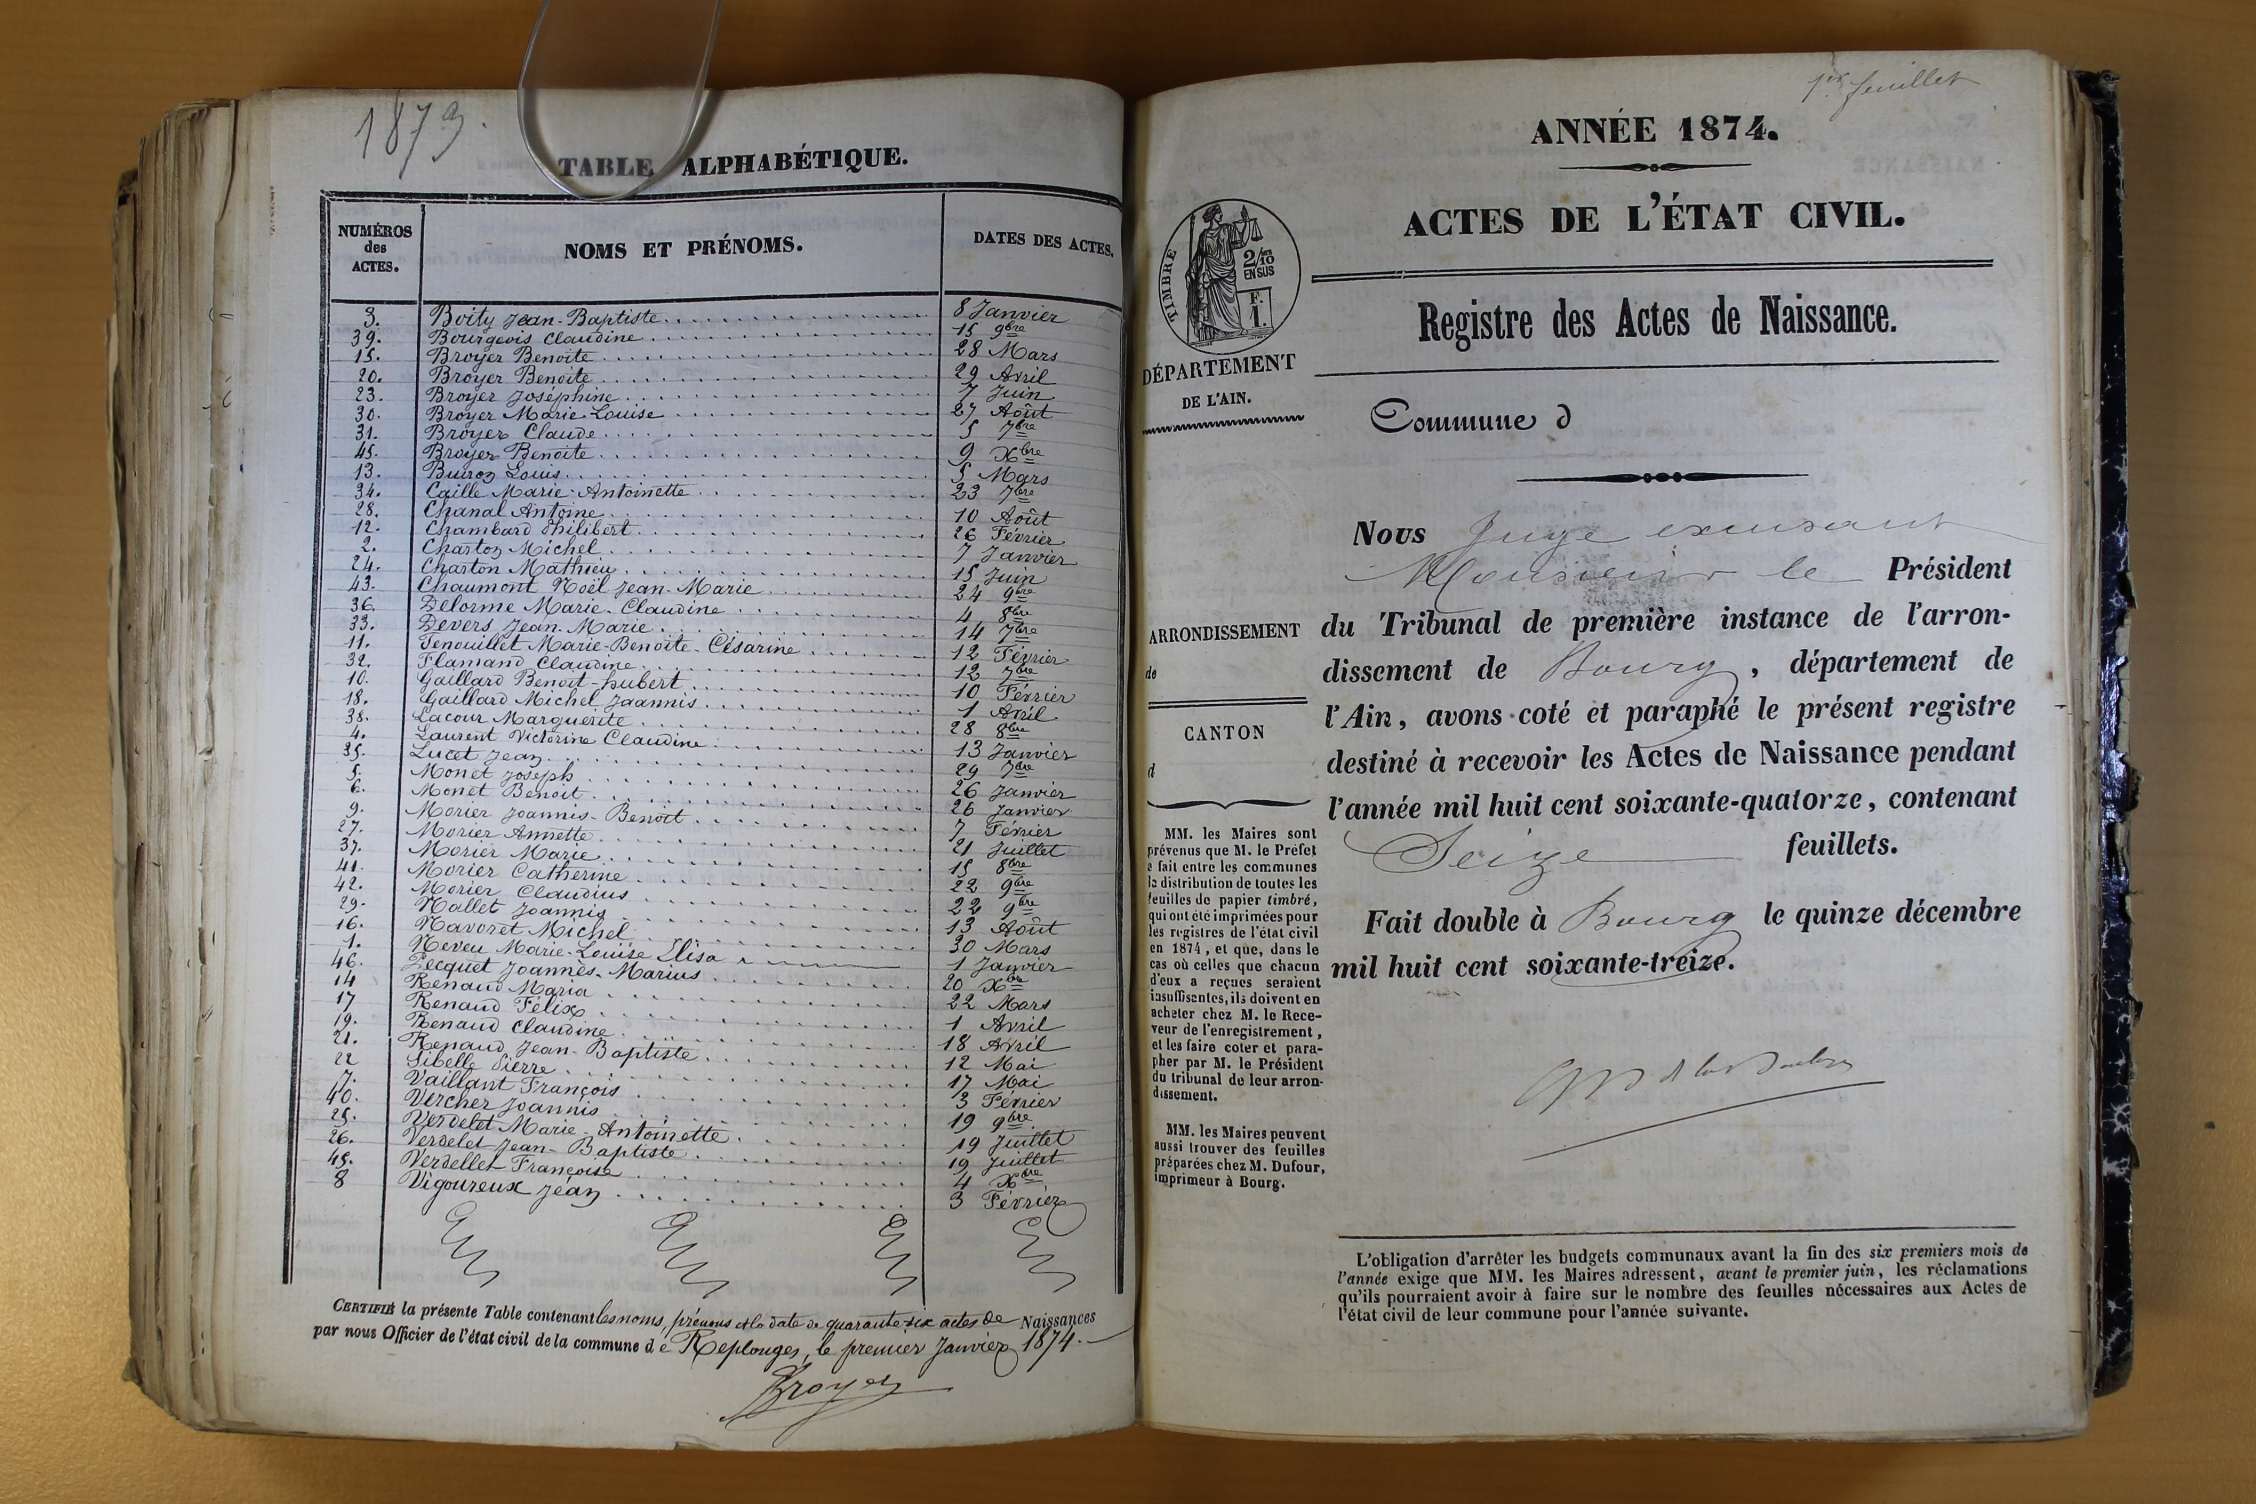 1873.
TABLE ALPHABÉTIQUE.
NUMÉROS des ACTES. NOMS ET PRÉNOMS. DATES DES ACTES.
3. Boity Jean-Baptiste 8 Janvier
39. Bourgeois Claudine 15 9bre
15. Broyer Benoite 28 Mars
20. Broyer Benoite 29 Avril
23. Broyer Joséphine 7 Juin
30. Broyer Marie-Louise 27 Août
31. Broyer Claude 5 7bre
45. Broyer Benoite 9 Xbre
13. Buiron Louis 5 Mars
34. Caille Marie-Antoinette 23 7bre
28. Chanal Antoine 10 Août
12. Chambard Philibert 26 Février
2. Charton Michel 7 Janvier
24. Charton Mathieu 15 Juin
43. Chaumont Noël Jean-Marie 24 9bre
36. Delorme Marie-Claudine 4 8bre
33. Devers Jean-Marie 14 7bre
11. Fenouillet Marie-Benoite-Césarine 12 Février
32. Flamand Claudine 12 7bre
10. Gaillard Benoit-hubert 10 Février
18. Gaillard Michel Joannis 1 Avril
38. Lacour Marguerite 28 8bre
4. Laurent Victorine Claudine 13 Janvier
35. Lucet Jean 29 7bre
5. Monet Joseph 26 Janvier
6. Monet Benoit 26 Janvier
9. Morier Joannis-Benoit 7 Février
27. Morier Annette 21 Juillet
37. Morier Marie 15 8bre
41. Morier Catherine 22 9bre
42. Morier Claudius 22 9bre
29. Nallet Joannis 13 Août
16. Navoret Michel 30 Mars
1. Neveu Marie-Louise Elisa 1 Janvier
46. Pecquet Joannès-Marius 20 Xbre
14 Renaud Maria 22 Mars
17 Renaud Félix 1 Avril
19. Renaud Claudine 18 Avril
21. Renaud Jean-Baptiste 12 Mai
22 Sibelle Pierre 17 Mai
7. Vaillant François 3 Février
40. Vercher Joannis 19 9bre
25. Verdelet Marie-Antoinette 19 Juillet
26. Verdelet Jean-Baptiste 19 Juillet
45. Verdellet Françoise 4 Xbre
8 Vigoureux Jean 3 Février
CERTIFIÉ la présente Table contenant les noms, prénoms et la date de quarante six actes de Naissances
par nous Officier de l'état civil de la commune de Replonges, le premier Janvier 1874.
Broyer
1er feuillet
ANNÉE 1874.
ACTES DE L'ÉTAT CIVIL.
Registre des Actes de Naissance.
TIMBRE
2/10 EN SUS
F. 1.
DÉPARTEMENT
DE L'AIN.
ARRONDISSEMENT
de
CANTON
d
MM. les Maires sont
prévenus que M. le Préfet
a fait entre les communes
la distribution de toutes les
feuilles de papier timbré,
qui ont été imprimées pour
les registres de l'état civil
en 1874, et que, dans le
cas où celles que chacun
d'eux a reçues seraient
insuffisantes, ils doivent en
acheter chez M. le Rece-
veur de l'enregistrement,
et les faire coter et para-
pher par M. le Président
du tribunal de leur arron-
dissement.
MM. les Maires peuvent
aussi trouver des feuilles
préparées chez M. Dufour,
imprimeur à Bourg.
Commune d
Nous Juge excusant
Monsieur le Président
du Tribunal de première instance de l'arron-
dissement de Bourg, département de
l'Ain, avons coté et paraphé le présent registre
destiné à recevoir les Actes de Naissance pendant
l'année mil huit cent soixante-quatorze, contenant
Seize feuillets.
Fait double à Bourg le quinze décembre
mil huit cent soixante-treize.
L'obligation d'arrêter les budgets communaux avant la fin des six premiers mois de
l'année exige que MM. les Maires adressent, avant le premier juin, les réclamations
qu'ils pourraient avoir à faire sur le nombre des feuilles nécessaires aux Actes de
l'état civil de leur commune pour l'année suivante.